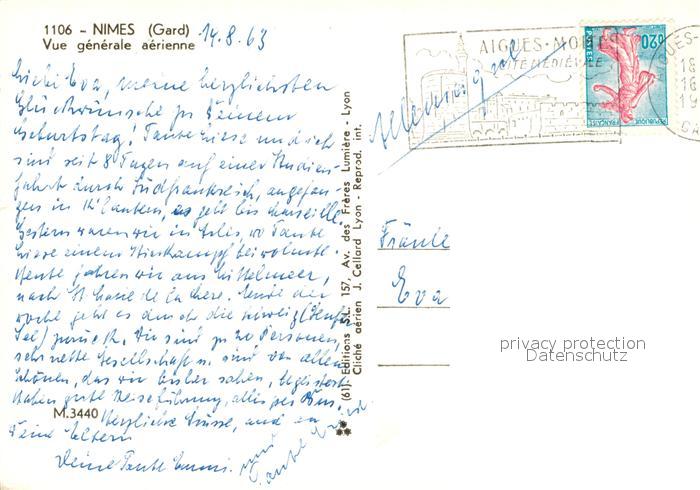 1106 - NIMES (Gard)
Vue générale aérienne
14.8.63
Liebe Eva, meine herzlichsten
Glückwünsche zu Deinem
Geburtstag! Tante Liese und ich
sind seit 8 Tagen auf einer Studien-
fahrt durch Südfrankreich, angefan-
gen in es geht bis Marseille.
Gestern waren wir in Arles, wo Tante
Liese einem Stierkampf beiwohnte.
Heute fahren wir ans Mittelmeer,
nach St Marie de la Mere. Ende der
Woche geht es durch die Schweiz (Genfer
See) zurück. Wir sind 20 Personen,
sehr nette Gesellschaft u. sind von allem
Schönen, das wir bisher sahen, begeistert
Haben gute Reiseführung, alles per Bus.
Herzliche Grüsse, auch an
Deine Eltern
Deine Tante Emmi. und
Tante Liese
M.3440
(61) Editions S.L. 157, Av. des Frères Lumière - Lyon
Cliché aérien J. Cellard Lyon - Reprod. int.
Allemagne
AIGUES-MORTES
CITÉ MÉDIÉVALE
AIGUES-
18
POSTES
0,20
REPUBLIQUE FRANÇAISE
Fräulein
Eva
privacy protection
Datenschutz